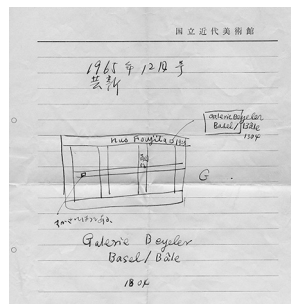 国立近代美術館
1965年12月号
芸新
Galerie Beyeler
Basel/Bâle
1304
G
Galerie Beyeler
Basel/Bâle
1304